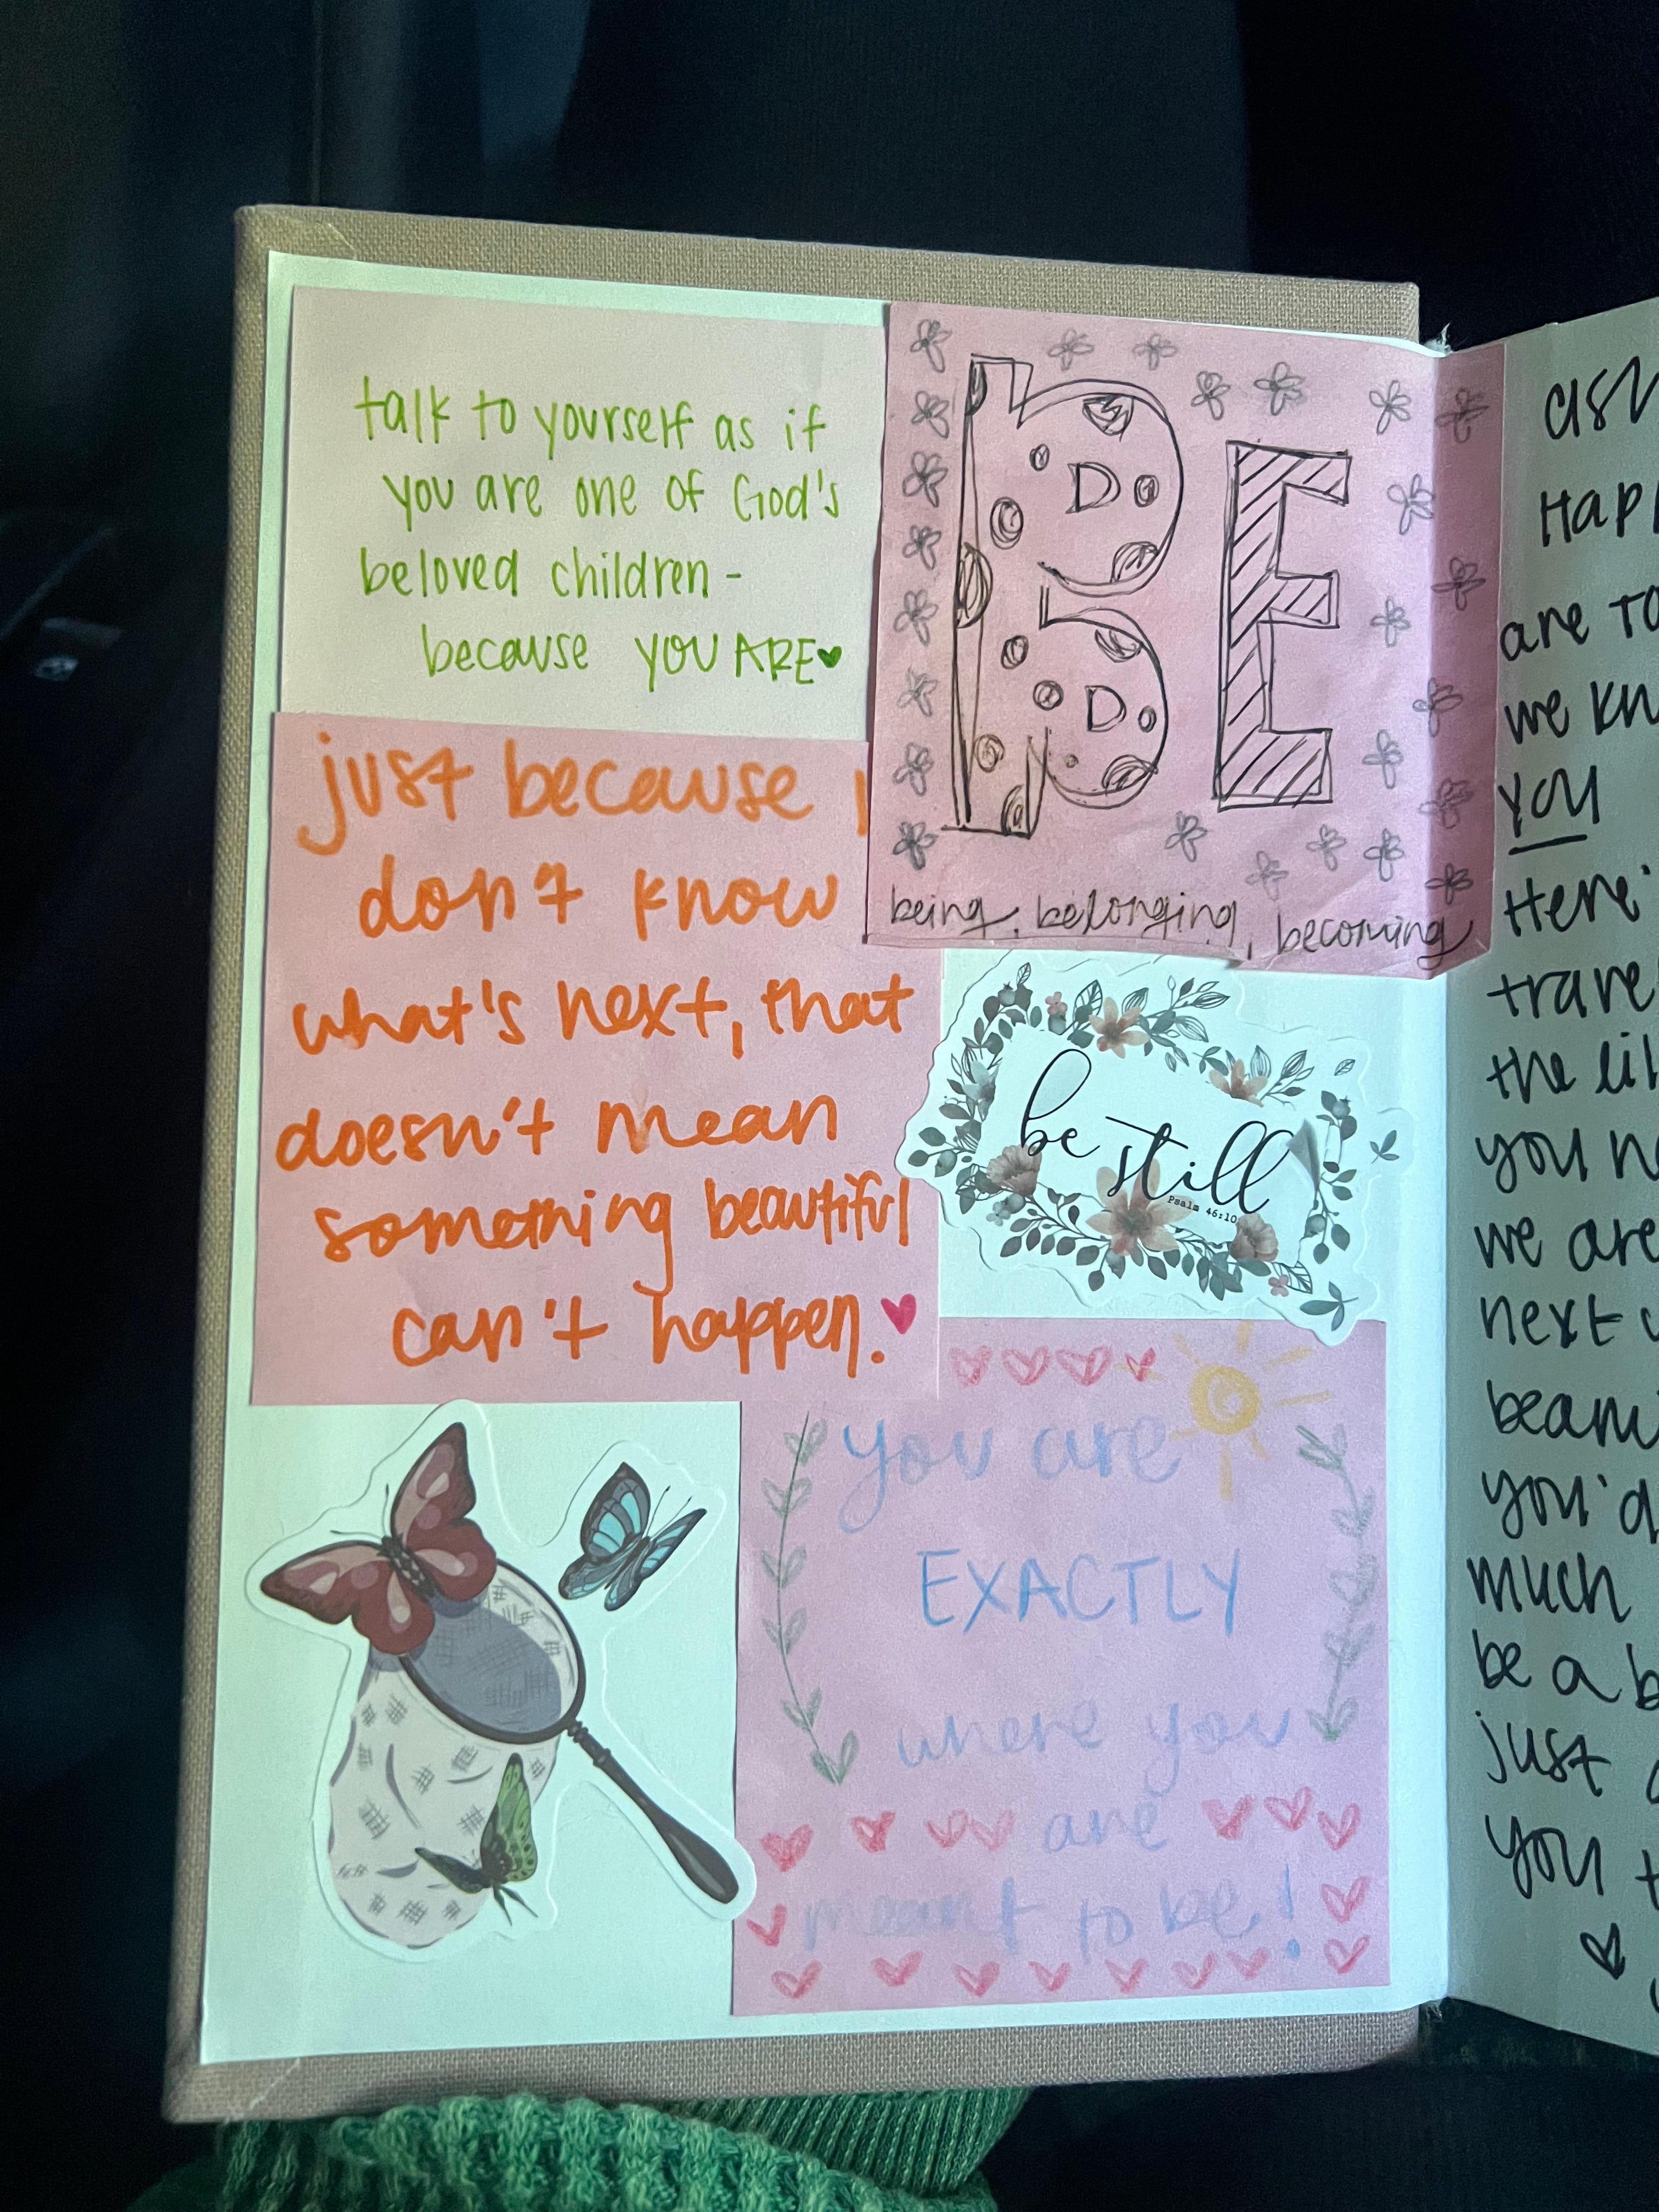 talk to yourself as if
you are one of God's
beloved children -
because YOU ARE
BE
being, belonging, becoming
just because I
don't know
what's next, that
doesn't mean
something beautiful
can't happen.
be still
Psalm 46:10
you are
EXACTLY
where you
are
meant to be!
are
we
you
the
you
we are
next
you'd
much
be a
just
you